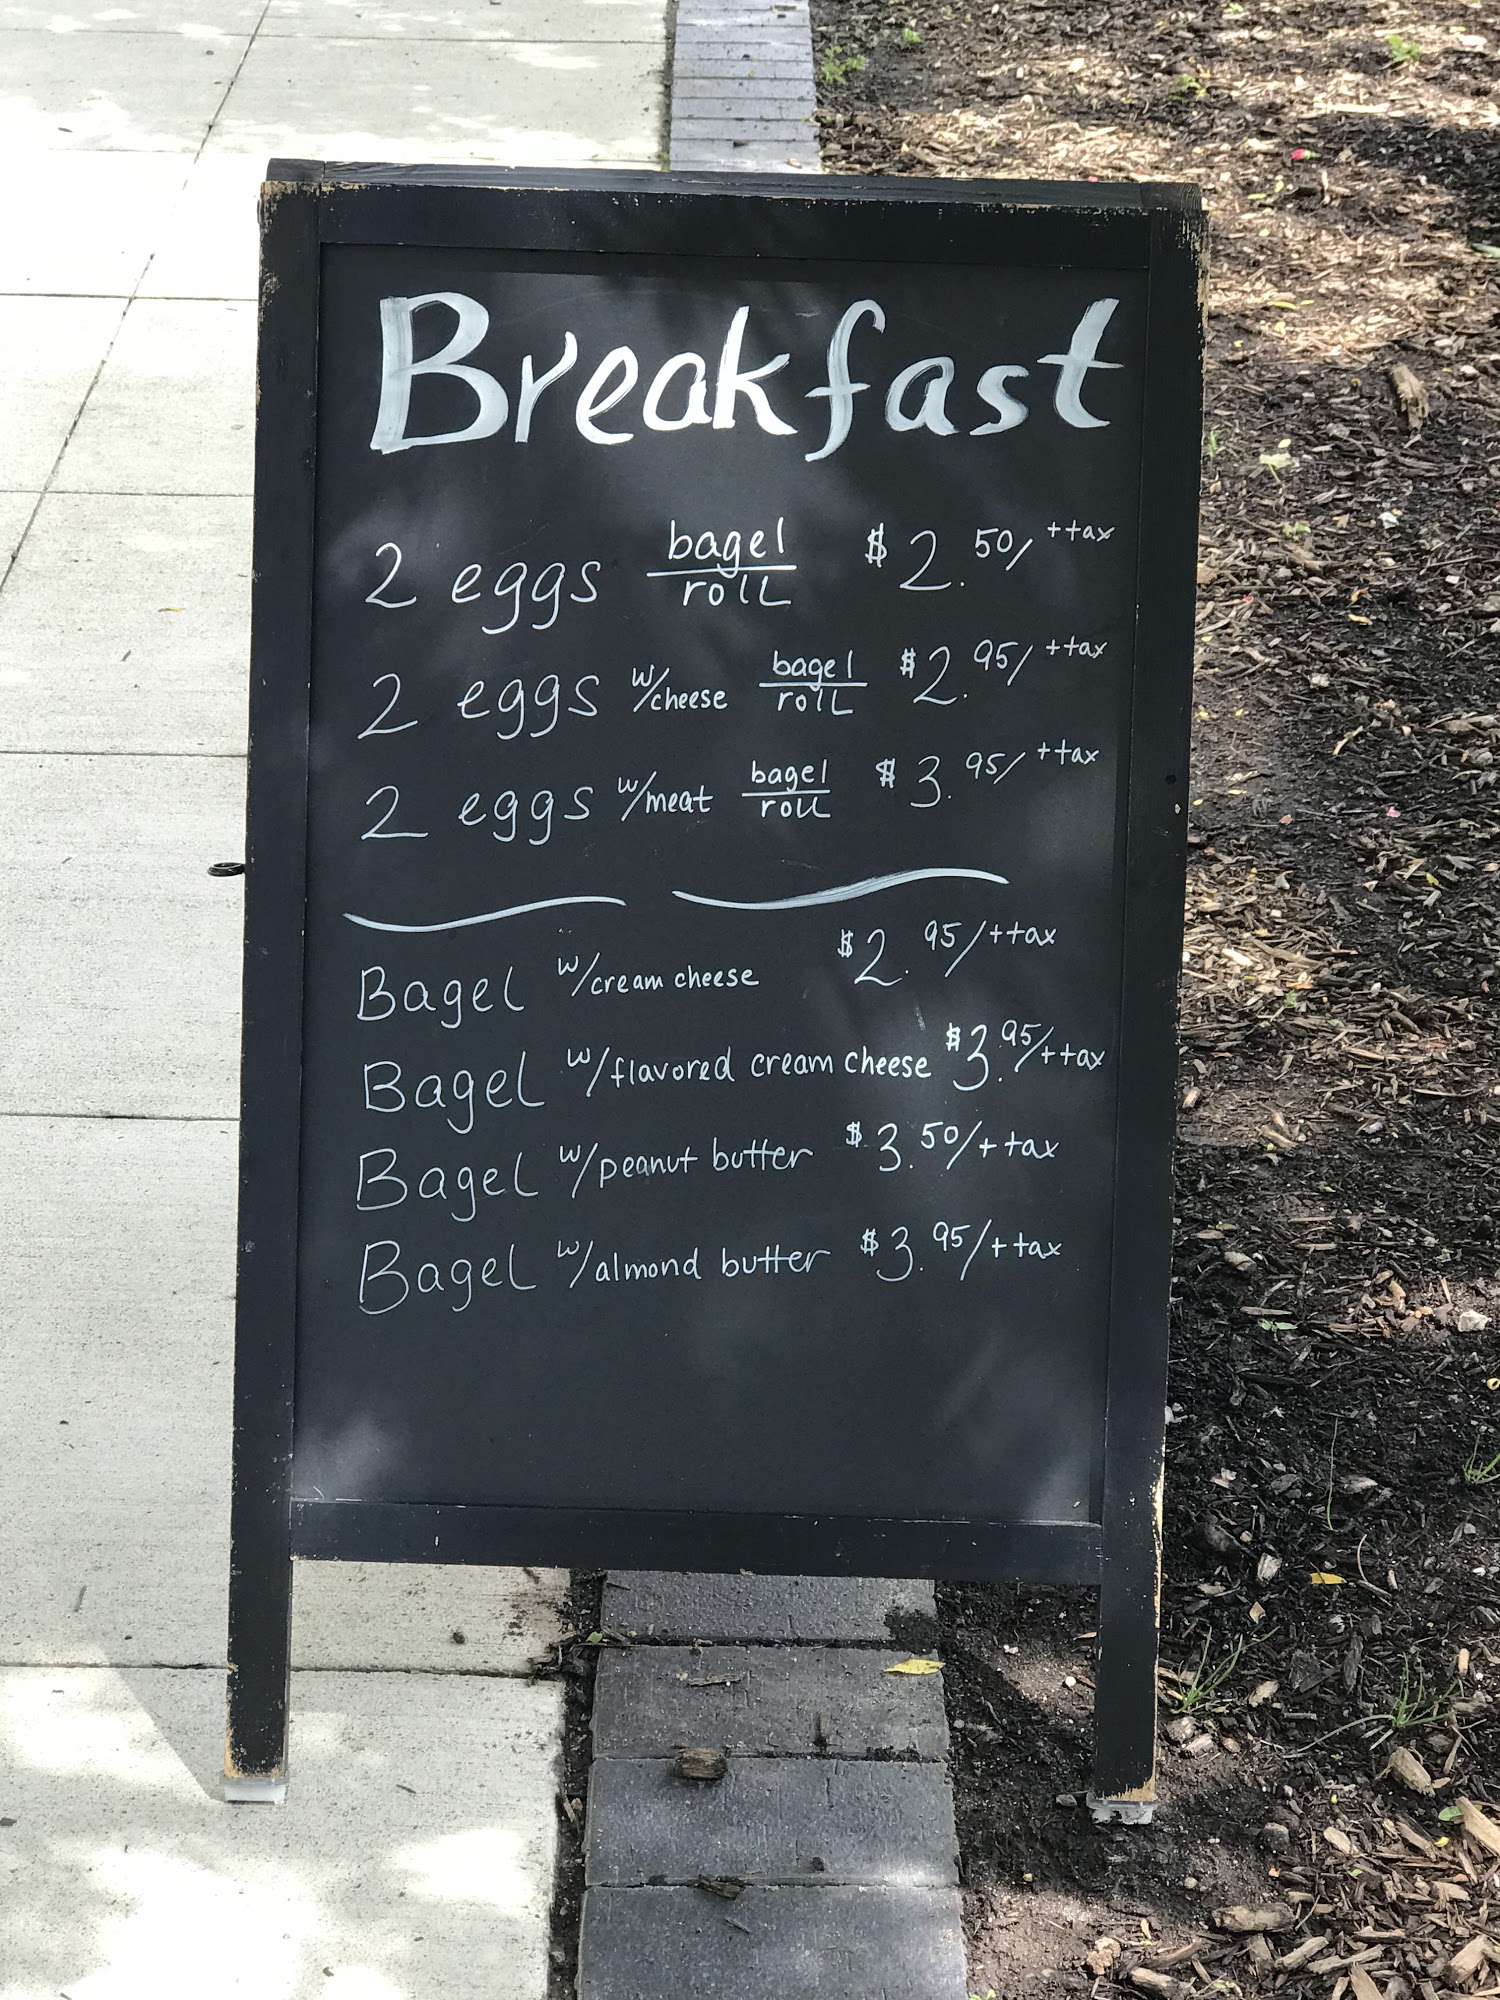 Breakfast
2 eggs bagel/roll $2.50/ +tax
2 eggs w/cheese bagel/roll $2.95/ +tax
2 eggs w/meat bagel/roll $3.95/ +tax
Bagel w/cream cheese $2.95/+tax
Bagel w/flavored cream cheese $3.95/+tax
Bagel w/peanut butter $3.50/+tax
Bagel w/almond butter $3.95/+tax